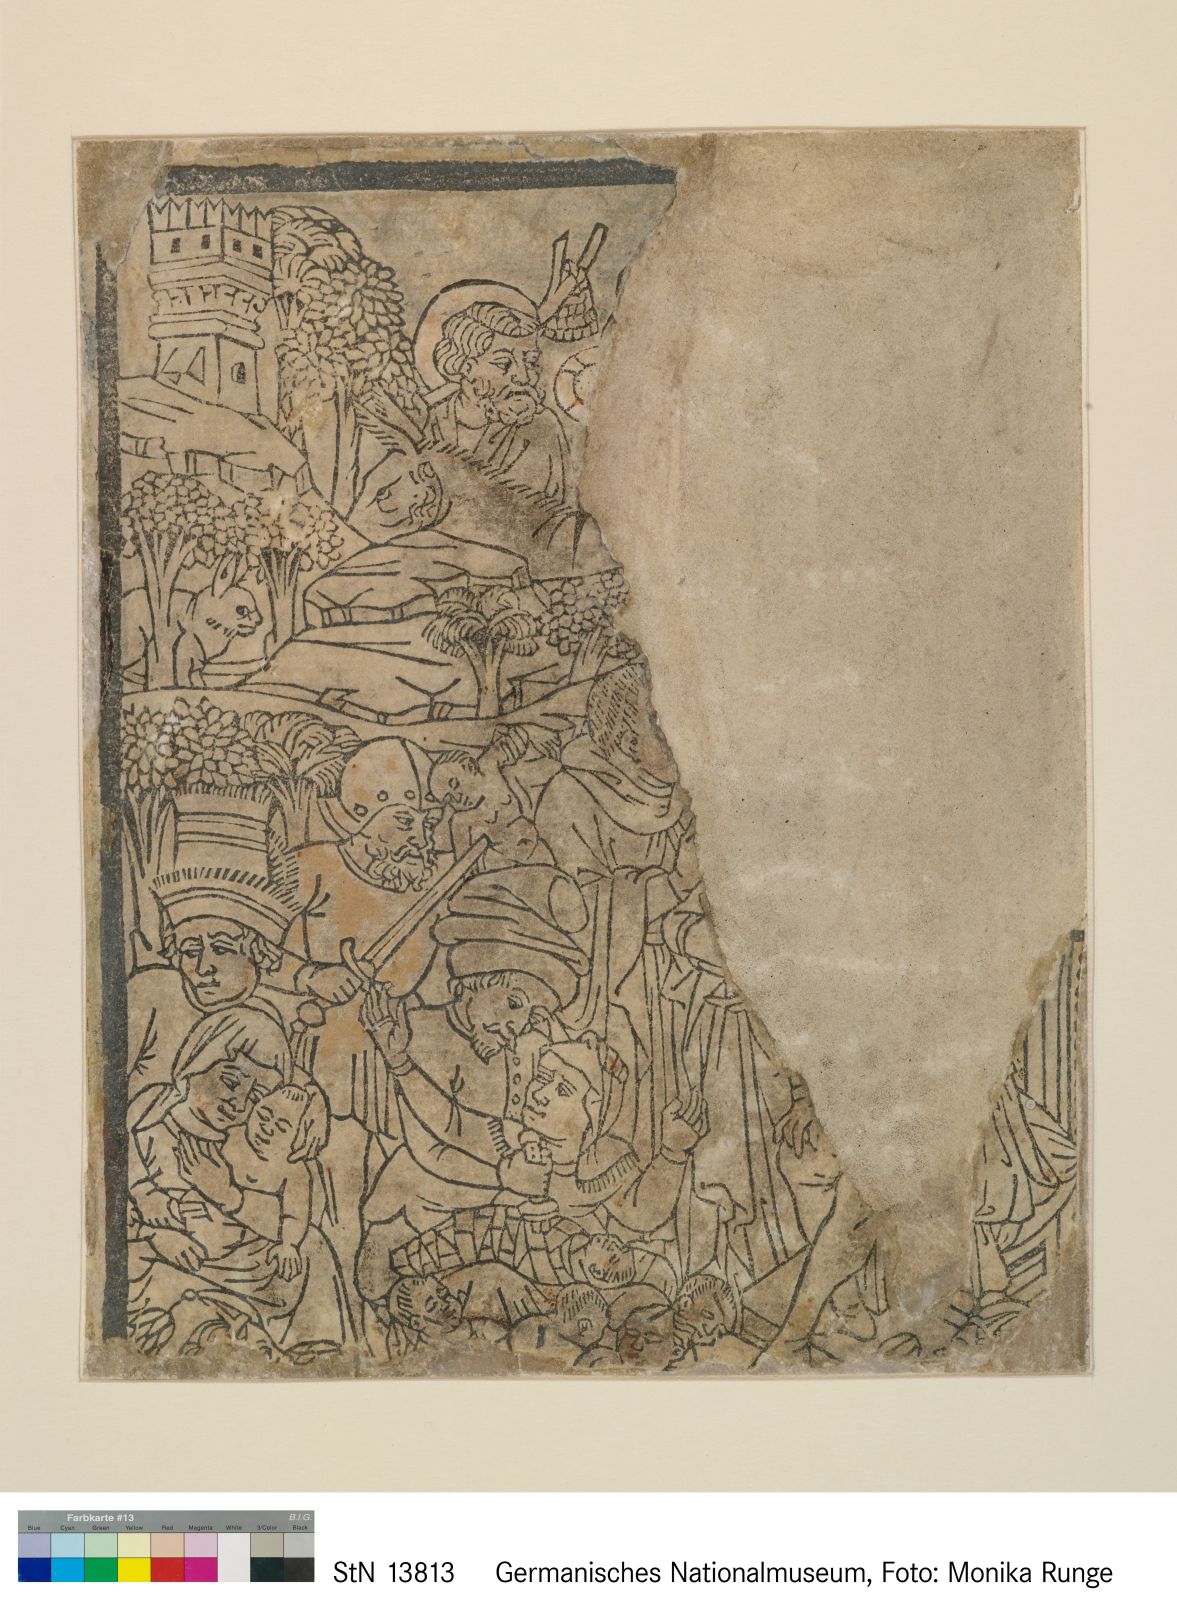 Farbkarte #13 B.I.G.
Blue Cyan Green Yellow Red Magenta White 3/Color Black
StN 13813 Germanisches Nationalmuseum, Foto: Monika Runge